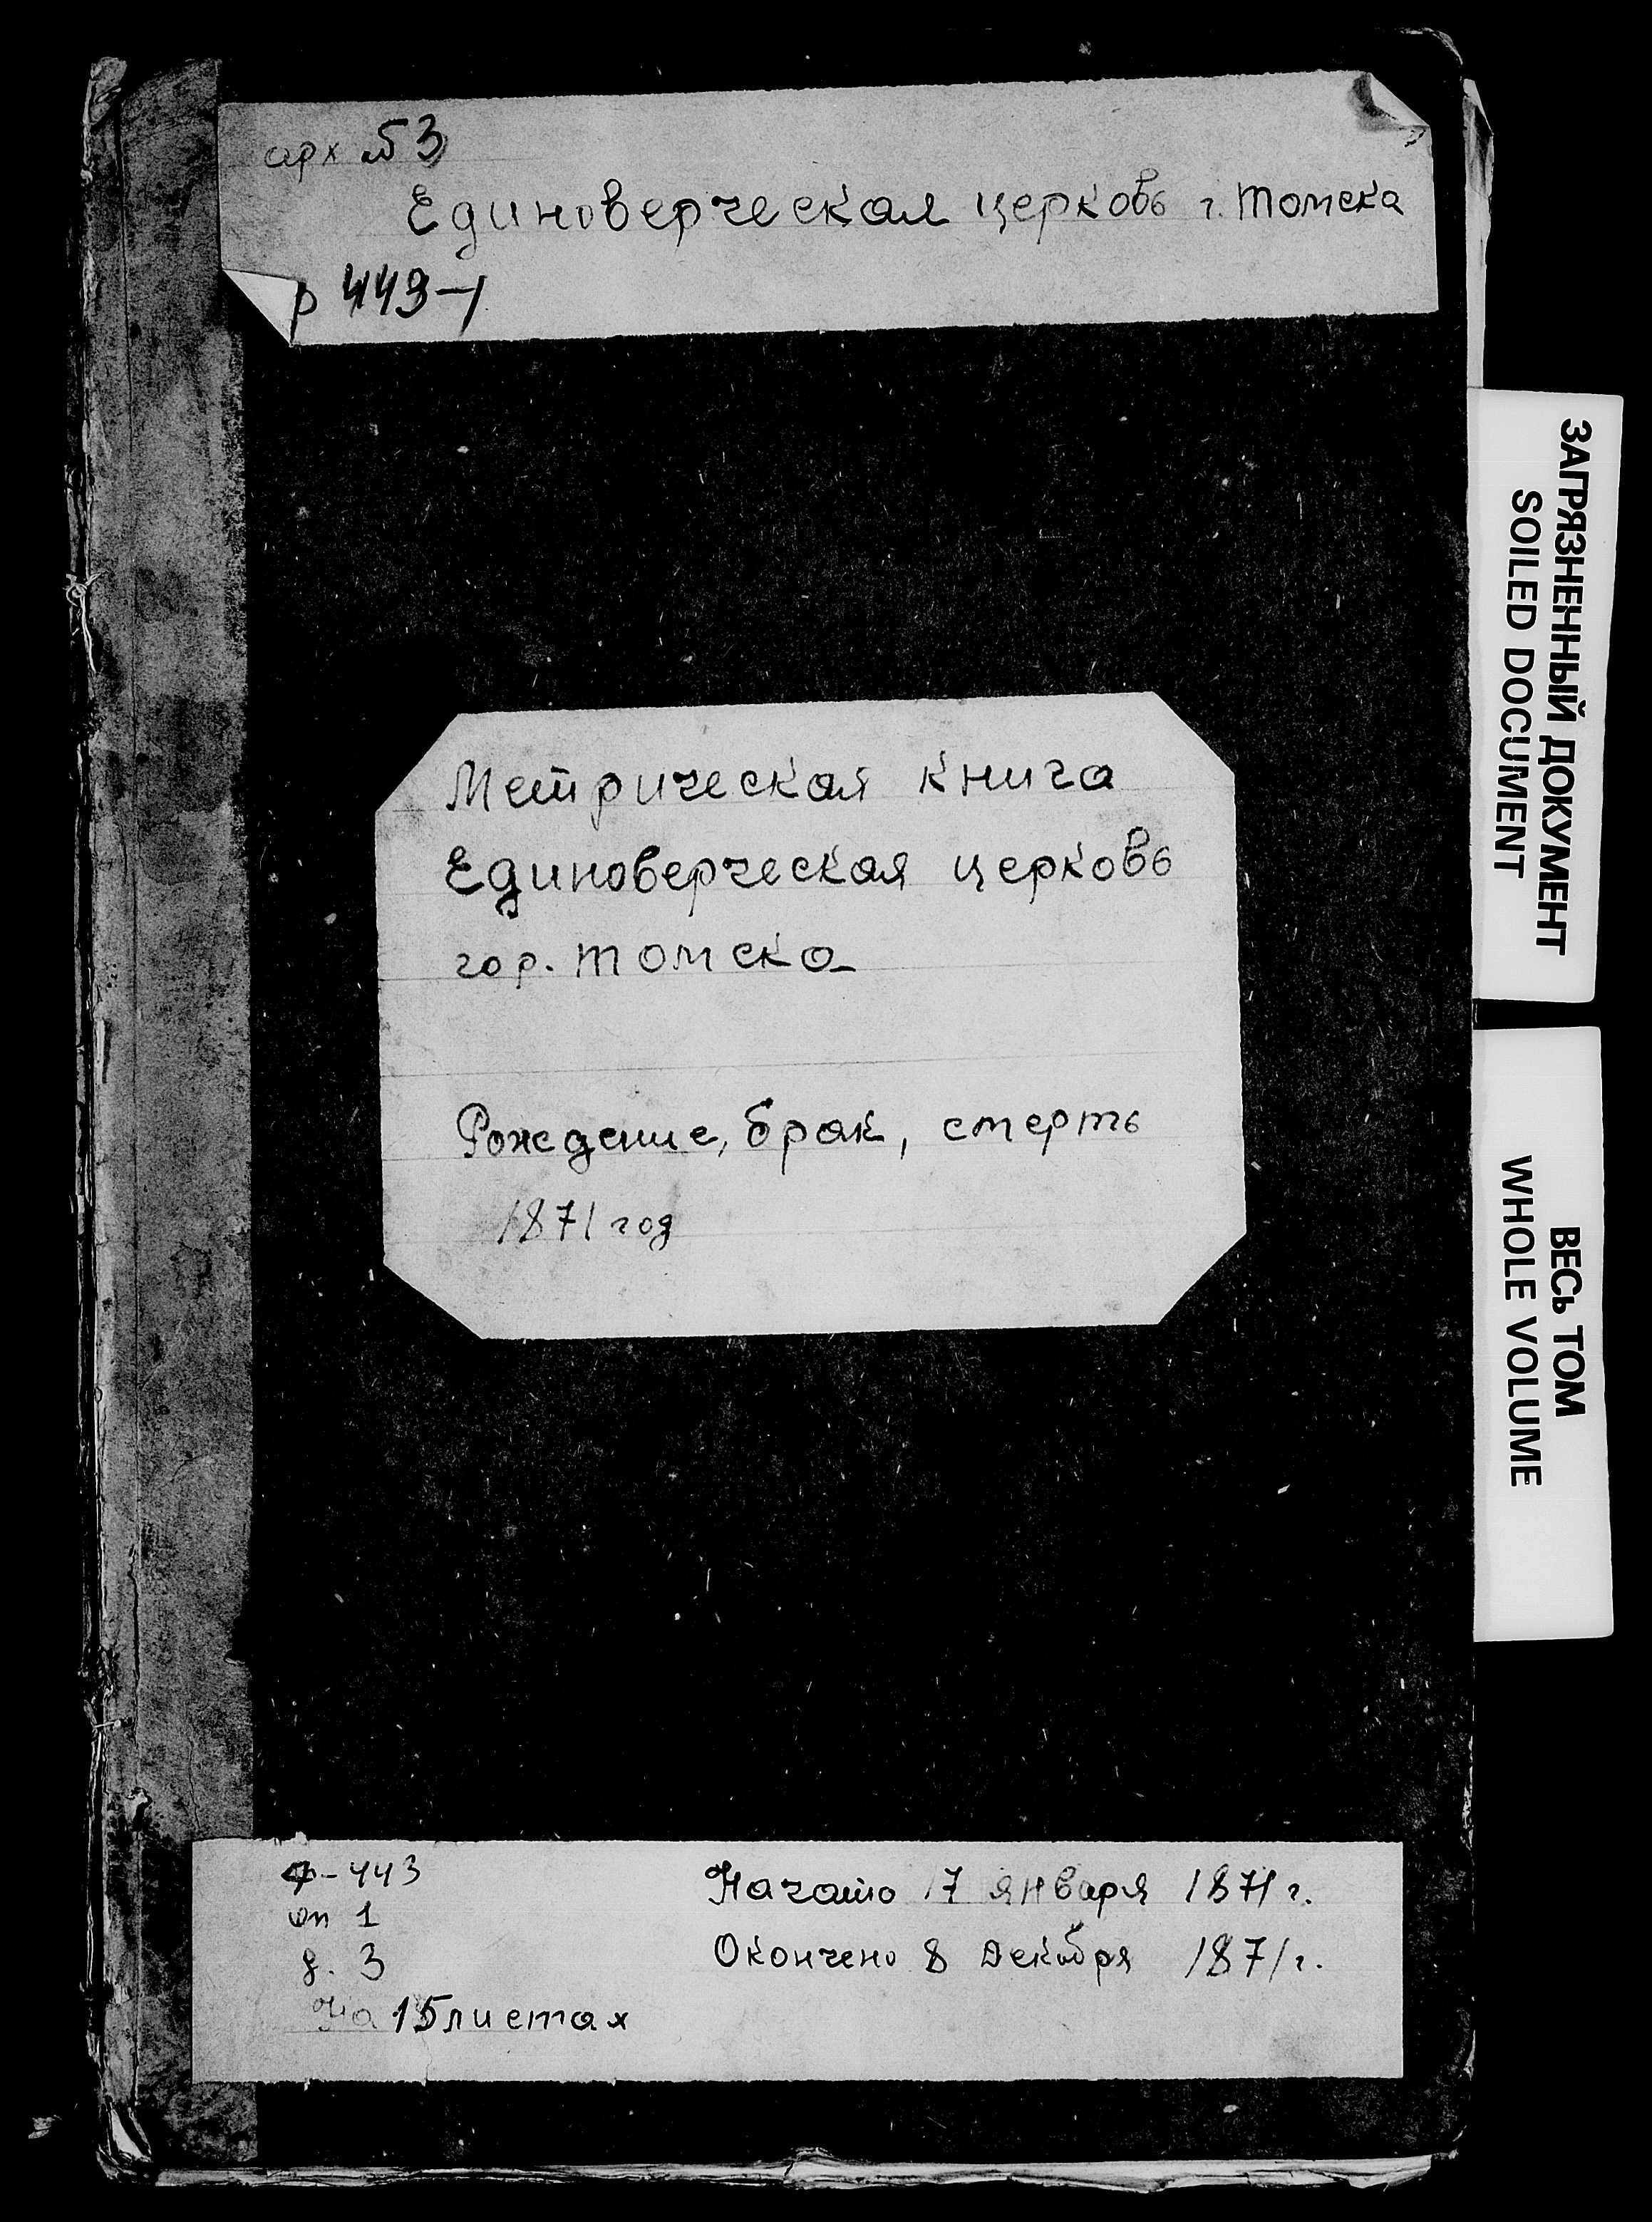 арх №3
Единоверческая церковь г. Томска
р 443-1
Метрическая книга
Единоверческая церковь
гор. Томска
Рождение, брак, смерть
1871 год
ф-443
оп 1
д. 3
На 15 листах
Начато 17 января 1871 г.
Окончено 8 Декабря 1871 г.
ЗАГРЯЗНЕННЫЙ ДОКУМЕНТ
SOILED DOCUMENT
ВЕСЬ ТОМ
WHOLE VOLUME